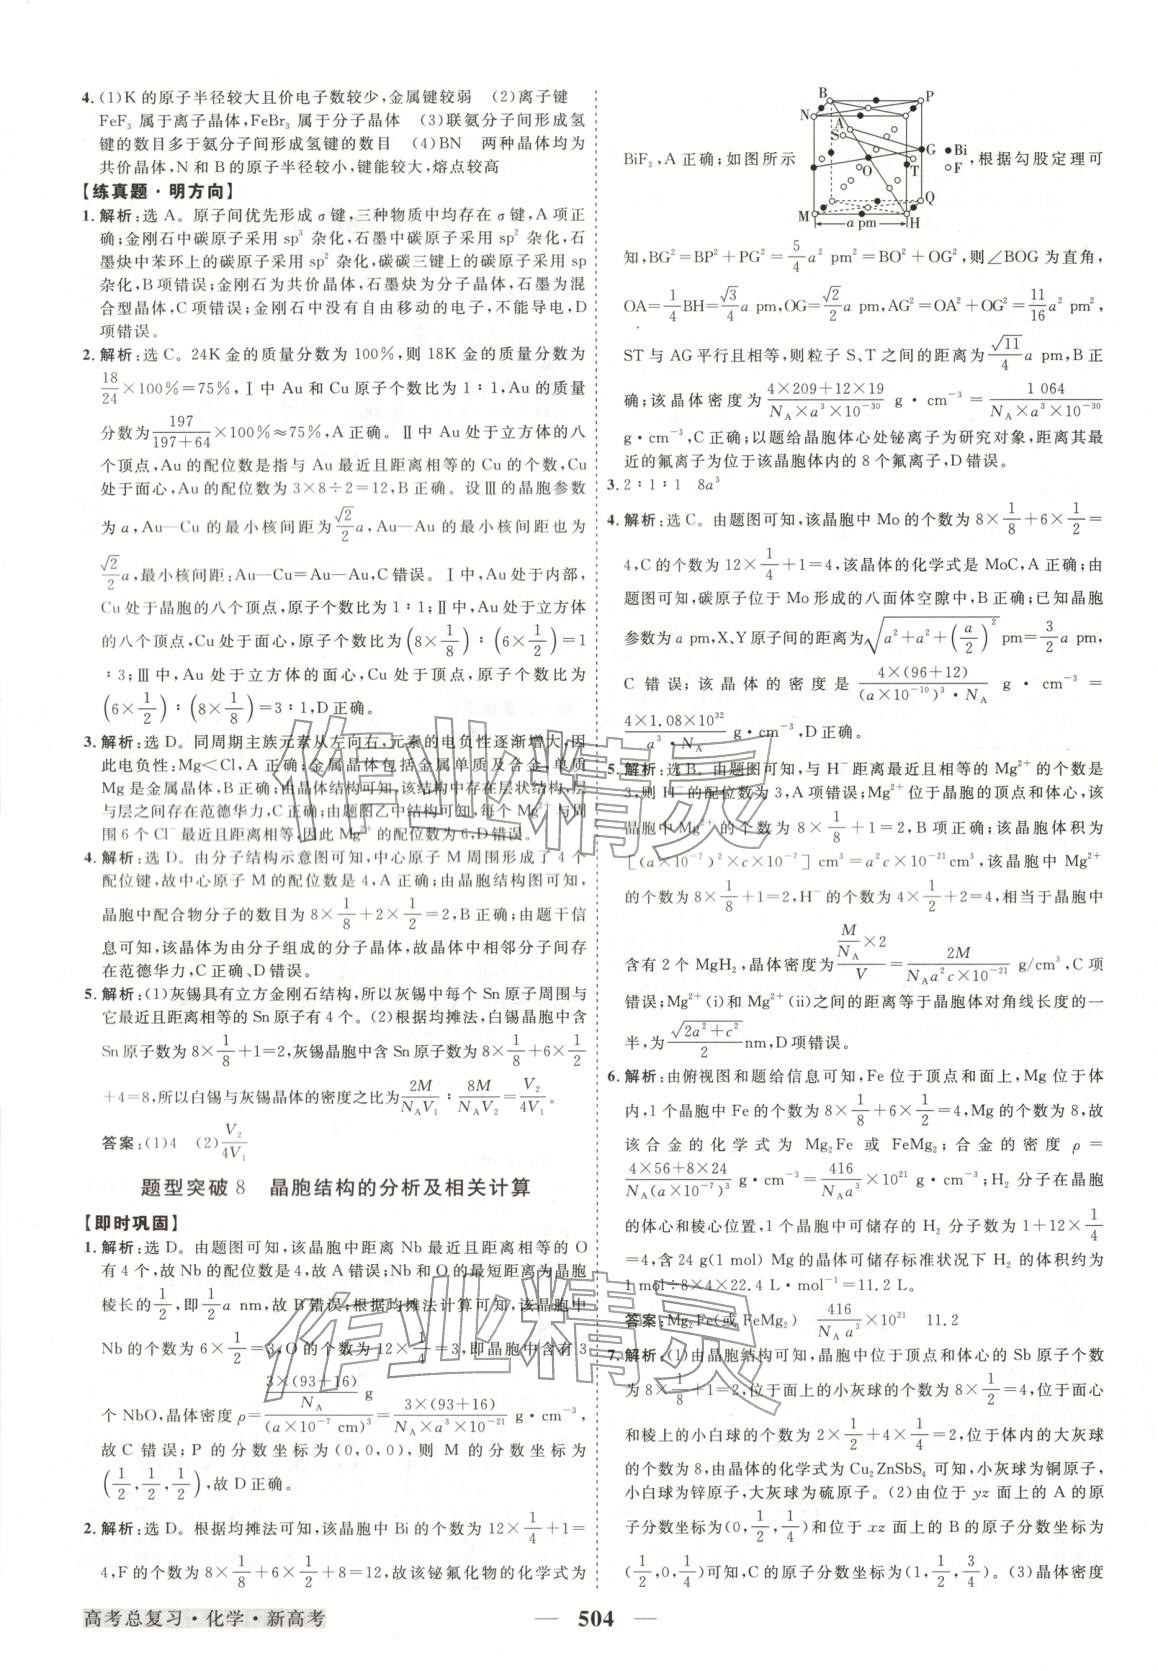 4.(1)K 的原子半径较大且价电子数较少,金属键较弱　(2)离子键
FeF₃ 属于离子晶体,FeBr₃ 属于分子晶体　(3)联氨分子间形成氢
键的数目多于氨分子间形成氢键的数目　(4)BN　两种晶体均为
共价晶体,N 和 B 的原子半径较小,键能较大,熔点较高
【练真题·明方向】
1.解析:选 A。原子间优先形成 σ 键,三种物质中均存在 σ 键,A 项正
确;金刚石中碳原子采用 sp³ 杂化,石墨中碳原子采用 sp² 杂化,石
墨炔中苯环上的碳原子采用 sp² 杂化,碳碳三键上的碳原子采用 sp
杂化,B项错误;金刚石为共价晶体,石墨炔为分子晶体,石墨为混
合型晶体,C 项错误;金刚石中没有自由移动的电子,不能导电,D
项错误。
2.解析:选 C。24K 金的质量分数为 100%,则 18K 金的质量分数为
18/24×100%=75%,Ⅰ中 Au 和 Cu 原子个数比为 1∶1,则 Au 的质量
分数为 197/(197+64)×100%≈75%,A 正确。Ⅱ中 Au 处于立方体的八
个顶点,Au 的配位数是指与 Au 最近且距离相等的 Cu 的个数,Cu
处于面心,Au 的配位数为 3×8÷2=12,B 正确。设Ⅲ的晶胞参数
为 a,Au—Cu 的最小核间距为 (√2/2)a,Au—Au 的最小核间距也为
(√2/2)a,最小核间距:Au—Cu=Au—Au,C 错误。Ⅰ中,Au 处于内部,
Cu 处于晶胞的八个顶点,原子个数比为 1∶1;Ⅱ中,Au 处于立方体
的八个顶点,Cu 处于面心,原子个数比为(8×1/8)∶(6×1/2)=1
∶3;Ⅲ中,Au 处于立方体的面心,Cu 处于顶点,原子个数比为
(6×1/2)∶(8×1/8)=3∶1,D正确。
3.解析:选 D。同周期主族元素从左向右,元素的电负性逐渐增大,因
此电负性:Mg<Cl,A 正确;金属晶体包括金属单质及合金,单质
Mg 是金属晶体,B 正确;由晶体结构可知,该结构中存在层状结构,层
与层之间存在范德华力,C正确;由题图乙中结构可知,每个 Mg²⁺ 与周
围 6 个 Cl⁻ 最近且距离相等,因此 Mg²⁺ 的配位数为 6,D错误。
4.解析:选 D。由分子结构示意图可知,中心原子 M 周围形成了 4 个
配位键,故中心原子 M 的配位数是 4,A 正确;由晶胞结构图可知,
晶胞中配合物分子的数目为 8×1/8+2×1/2=2,B 正确;由题干信
息可知,该晶体为由分子组成的分子晶体,故晶体中相邻分子间存
在范德华力,C 正确、D 错误。
5.解析:(1)灰锡具有立方金刚石结构,所以灰锡中每个 Sn 原子周围与
它最近且距离相等的 Sn 原子有 4 个。(2)根据均摊法,白锡晶胞中含
Sn 原子数为 8×1/8+1=2,灰锡晶胞中含 Sn 原子数为 8×1/8+6×1/2
+4=8,所以白锡与灰锡晶体的密度之比为 2M/(N_A V₁)∶8M/(N_A V₂)=V₂/(4V₁)。
答案:(1)4　(2)V₂/(4V₁)
题型突破 8　晶胞结构的分析及相关计算
【即时巩固】
1.解析:选 D。由题图可知,该晶胞中距离 Nb 最近且距离相等的 O
有 4 个,故 Nb 的配位数是 4,故 A 错误;Nb 和 O 的最短距离为晶胞
棱长的 1/2,即 1/2 a nm,故 B 错误;根据均摊法计算可知,该晶胞中
Nb 的个数为 6×1/2=3,O 的个数为 12×1/4=3,即晶胞中含有 3
个 NbO,晶体密度 ρ=(3×(93+16)/N_A g)/(a×10⁻⁷ cm)³=3×(93+16)/(N_A×a³×10⁻²¹) g·cm⁻³,
故 C 错误;P 的分数坐标为(0,0,0),则 M 的分数坐标为
(1/2,1/2,1/2),故 D 正确。
2.解析:选 D。根据均摊法可知,该晶胞中 Bi 的个数为 12×1/4+1=
4,F 的个数为 8×1/8+6×1/2+8=12,故该铋氟化物的化学式为
B P N A S G Bi F O T Q M H a pm
BiF₃,A 正确;如图所示　,根据勾股定理可
知,BG²=BP²+PG²=5/4 a² pm²=BO²+OG²,则∠BOG 为直角,
OA=1/4 BH=(√3/4)a pm,OG=(√2/2)a pm,AG²=OA²+OG²=11/16 a² pm²,
ST 与 AG 平行且相等,则粒子 S、T 之间的距离为 (√11/4)a pm,B 正
确;该晶体密度为 (4×209+12×19)/(N_A×a³×10⁻³⁰) g·cm⁻³=1 064/(N_A×a³×10⁻³⁰)
g·cm⁻³,C 正确;以题给晶胞体心处铋离子为研究对象,距离其最
近的氟离子为位于该晶胞体内的 8 个氟离子,D错误。
3.2∶1∶1　8a³
4.解析:选 C。由题图可知,该晶胞中 Mo 的个数为 8×1/8+6×1/2=
4,C 的个数为 12×1/4+1=4,该晶体的化学式是 MoC,A 正确;由
题图可知,碳原子位于 Mo 形成的八面体空隙中,B 正确;已知晶胞
参数为 a pm,X、Y 原子间的距离为√(a²+a²+(a/2)²) pm=3/2 a pm,
C 错误;该晶体的密度是 4×(96+12)/((a×10⁻¹⁰)³·N_A) g·cm⁻³=
4×1.08×10³²/(a³·N_A) g·cm⁻³,D正确。
5.解析:选 B。由题图可知,与 H⁻ 距离最近且相等的 Mg²⁺ 的个数是
3,则 H⁻ 的配位数为 3,A 项错误;Mg²⁺ 位于晶胞的顶点和体心,该
晶胞中 Mg²⁺ 的个数为 8×1/8+1=2,B 项正确;该晶胞体积为
[(a×10⁻⁷)²×c×10⁻⁷] cm³=a²c×10⁻²¹ cm³,该晶胞中 Mg²⁺
的个数为 8×1/8+1=2,H⁻ 的个数为 4×1/2+2=4,相当于晶胞中
含有 2 个 MgH₂,晶体密度为 (M/N_A×2)/V=2M/(N_A a²c×10⁻²¹) g/cm³,C 项
错误;Mg²⁺(i)和 Mg²⁺(ii)之间的距离等于晶胞体对角线长度的一
半,为 √(2a²+c²)/2 nm,D 项错误。
6.解析:由俯视图和题给信息可知,Fe 位于顶点和面上,Mg 位于体
内,1 个晶胞中 Fe 的个数为 8×1/8+6×1/2=4,Mg 的个数为 8,故
该合金的化学式为 Mg₂Fe 或 FeMg₂;合金的密度 ρ=
(4×56+8×24)/(N_A(a×10⁻⁷)³) g·cm⁻³=416/(N_A a³)×10²¹ g·cm⁻³;H₂ 分子在晶胞
的体心和棱心位置,1 个晶胞中可储存的 H₂ 分子数为 1+12×1/4
=4,含 24 g(1 mol) Mg 的晶体可储存标准状况下 H₂ 的体积约为
1 mol÷8×4×22.4 L·mol⁻¹=11.2 L。
答案:Mg₂Fe(或 FeMg₂)　416/(N_A a³)×10²¹　11.2
7.解析:(1)由晶胞结构可知,晶胞中位于顶点和体心的 Sb 原子个数
为 8×1/8+1=2,位于面上的小灰球的个数为 8×1/2=4,位于面心
和棱上的小白球的个数为 2×1/2+4×1/4=2,位于体内的大灰球
的个数为 8,由晶体的化学式为 Cu₂ZnSbS₄ 可知,小灰球为铜原子,
小白球为锌原子,大灰球为硫原子。(2)由位于 yz 面上的 A 的原
子分数坐标为(0,1/2,1/4)和位于 xz 面上的 B 的原子分数坐标为
(1/2,0,1/4)可知,C 的原子分数坐标为(1/2,1,3/4)。(3)晶体密度
高考总复习·化学·新高考
— 504 —
作业精灵
作业精灵